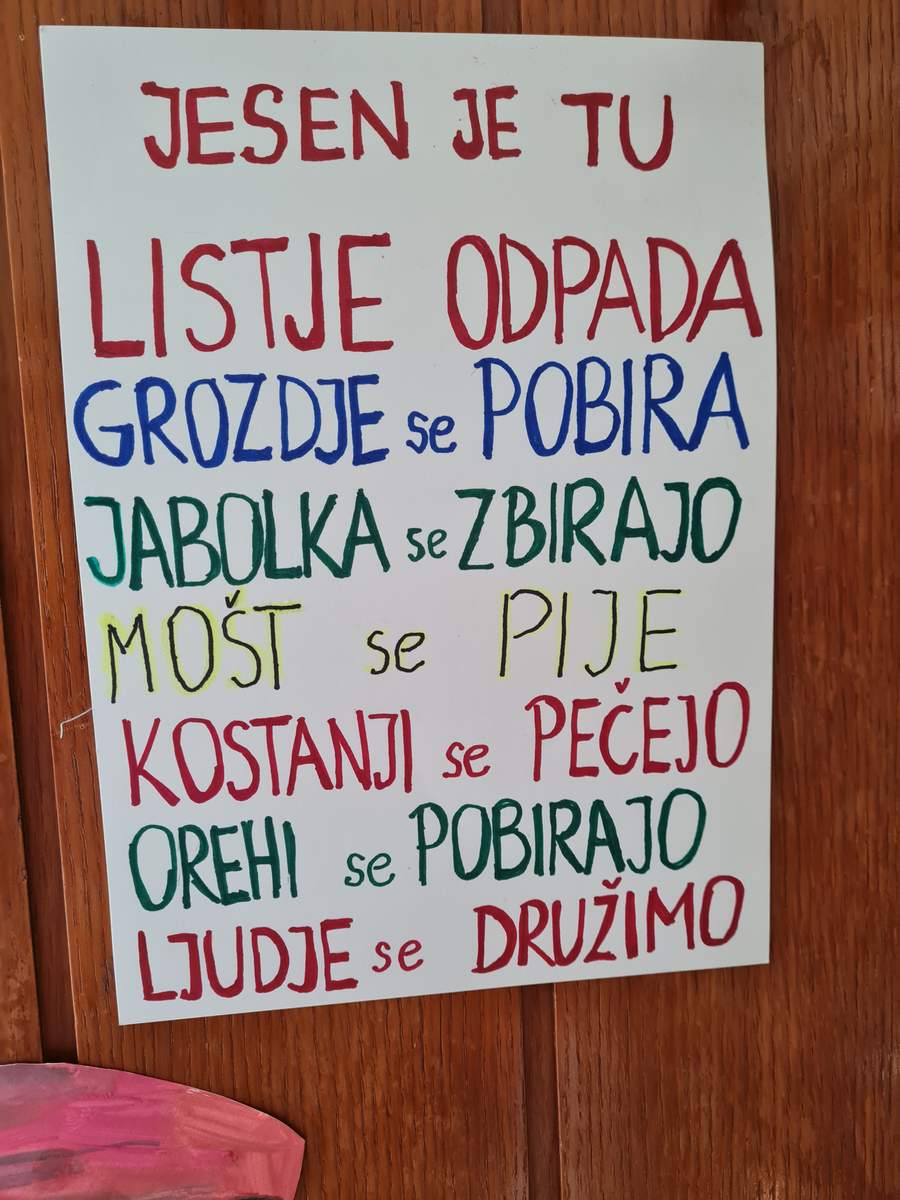 JESEN JE TU
LISTJE ODPADA
GROZDJE se POBIRA
JABOLKA se ZBIRAJO
MOŠT se PIJE
KOSTANJI se PEČEJO
OREHI se POBIRAJO
LJUDJE se DRUŽIMO